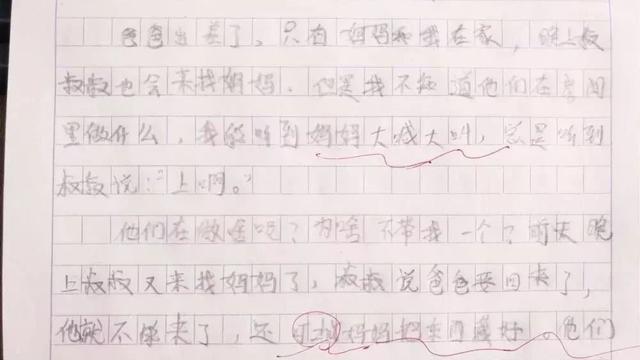 爸爸出差了，只有妈妈和我在家，晚上叔
叔叔也会来找妈妈。但是我不知道他们在房间
里做什么，我能听到妈妈大喊大叫，总是听到
叔叔说：“上啊。”
他们在做啥呢？为啥不带我一个？前天晚
上叔叔又来找妈妈了，叔叔说爸爸要回来了，
他就不能来了，还叮妈妈把东西藏好。他们